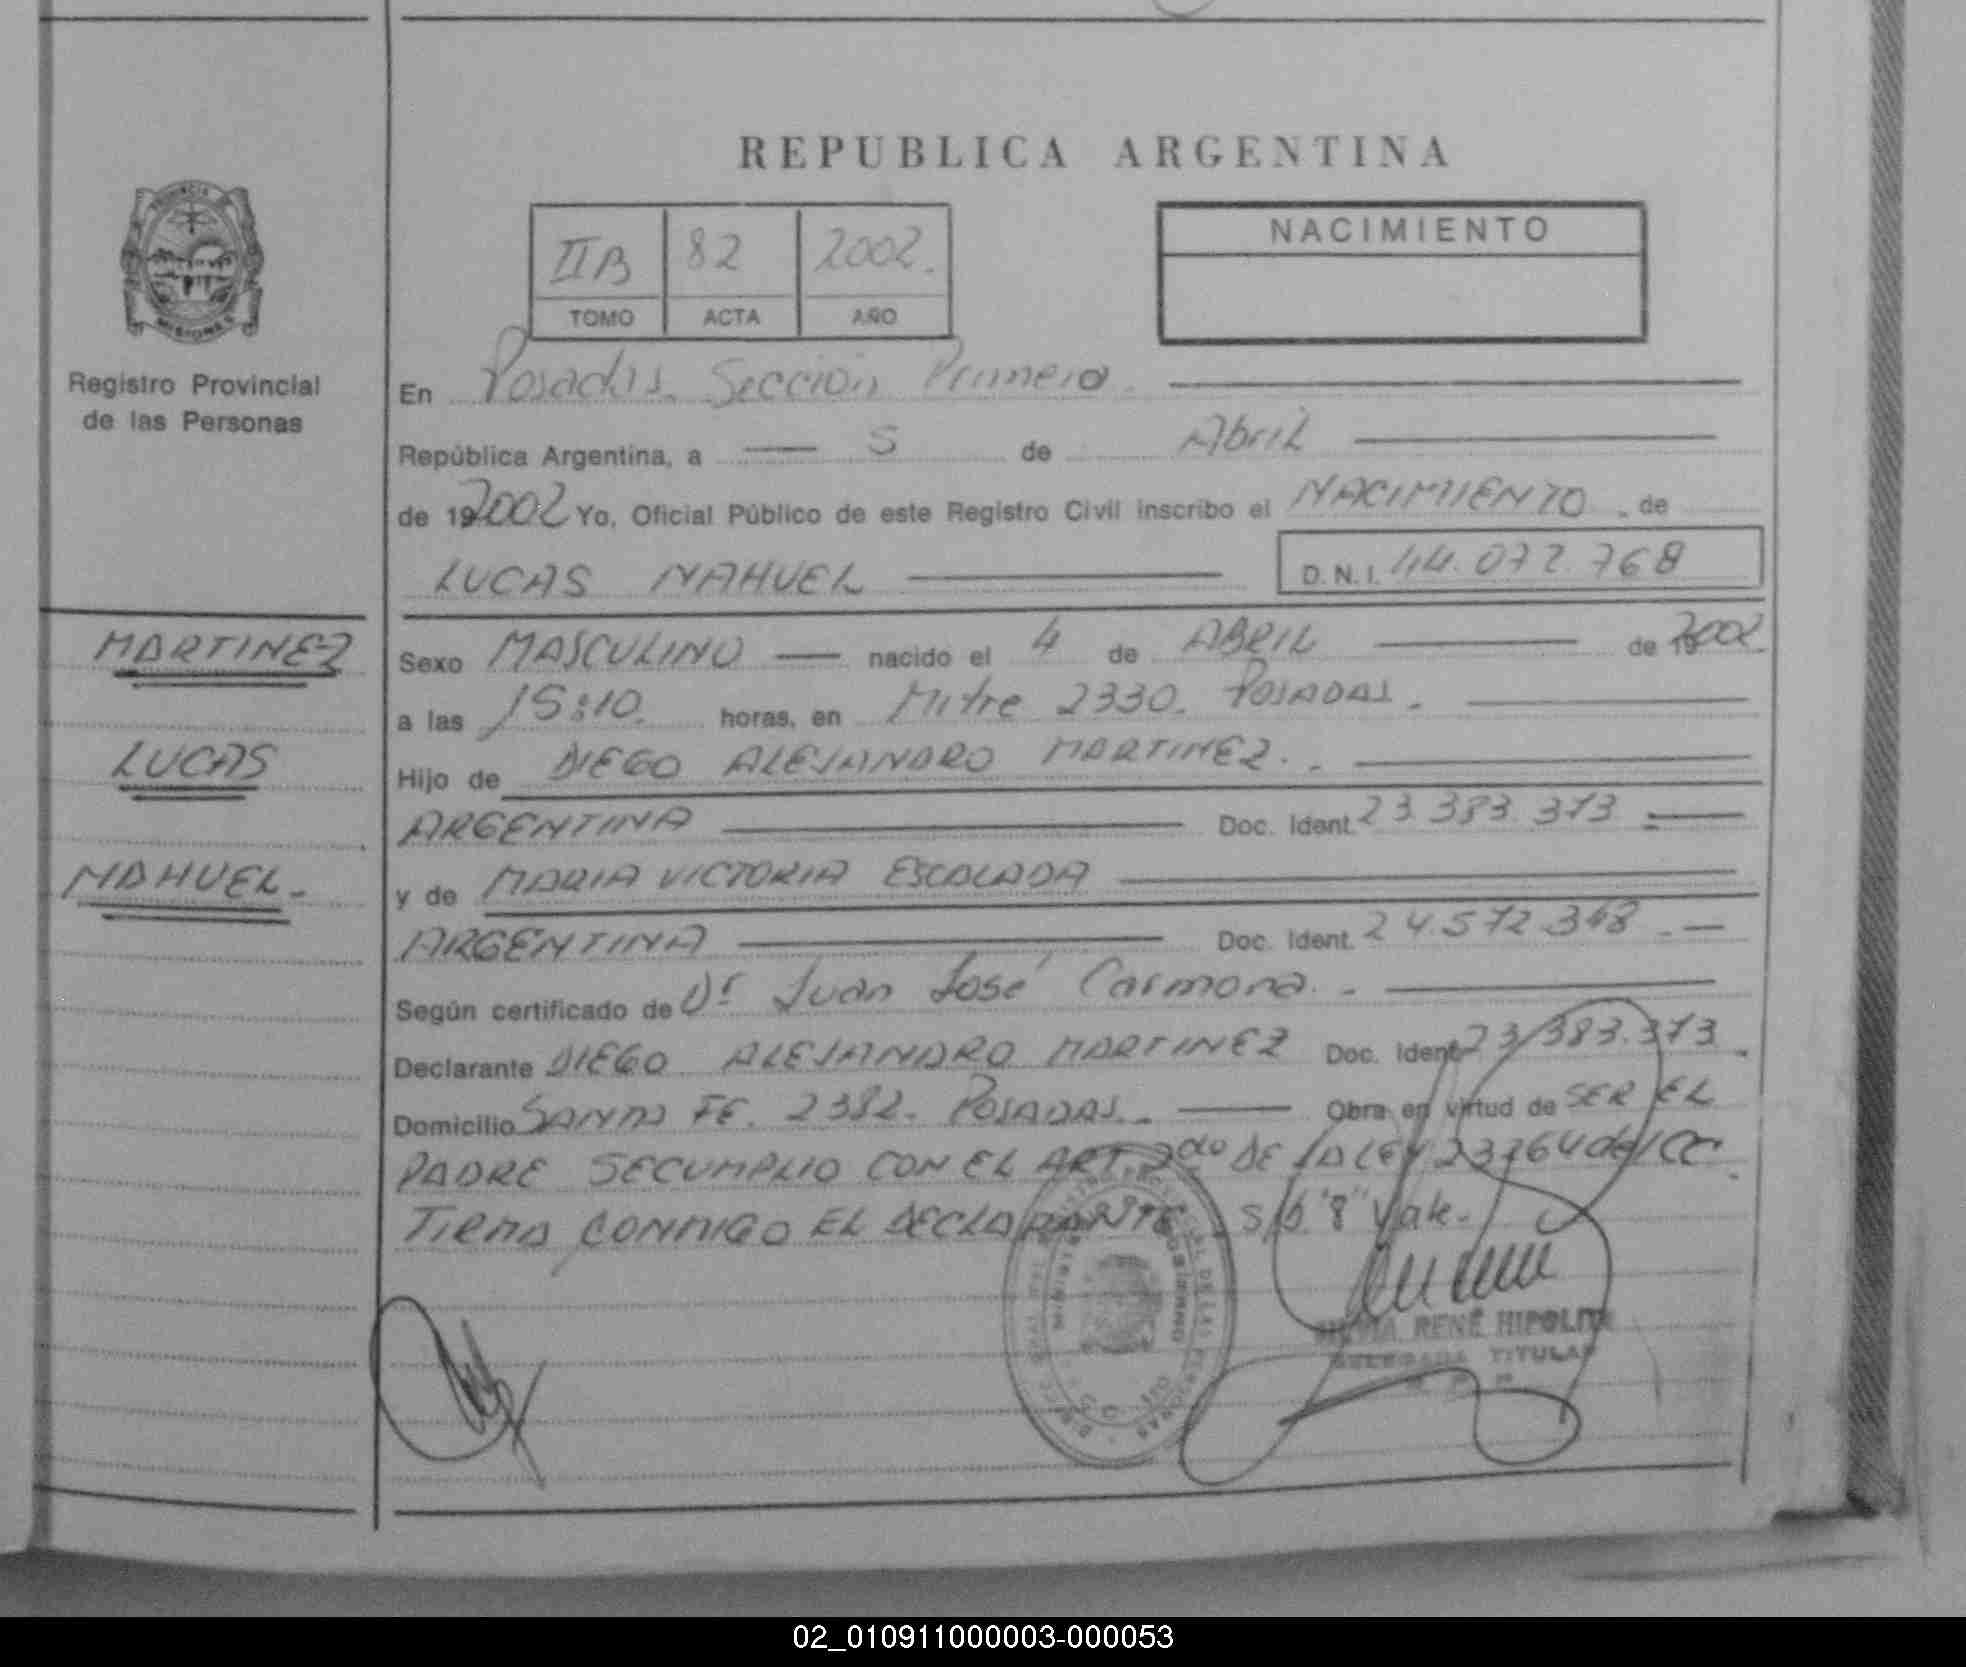 REPUBLICA ARGENTINA
NACIMIENTO
IIB 82 2002.
TOMO ACTA AÑO
PROVINCIA DE
MISIONES
Registro Provincial
de las Personas
En Posadas. Sección Primera.
República Argentina, a 5 de Abril
de 192002 Yo, Oficial Público de este Registro Civil inscribo el NACIMIENTO. de
LUCAS NAHUEL D.N.I. 44.072.768
MARTINEZ
LUCAS
NAHUEL.
Sexo MASCULINO nacido el 4 de ABRIL de 192002.
a las 15:10. horas, en Mitre 2330. POSADAS.
Hijo de DIEGO ALEJANDRO MARTINEZ.
ARGENTINA Doc. Ident. 23.383.373
y de MARIA VICTORIA ESCALADA
ARGENTINA Doc. Ident. 24.572.368
Según certificado de Dr Juan José Carmona.
Declarante DIEGO ALEJANDRO MARTINEZ Doc. Ident. 23.383.373.
Domicilio SANTA FE. 2382. POSADAS. Obra en virtud de SER EL
PADRE SE CUMPLIO CON EL ART 2do DE LA LEY 23264 del CC.
FIRMA CONMIGO EL DECLARANTE. S/b "8" Vale.
RENÉ HIPOLITO
DELEGADA TITULAR
02_010911000003-000053